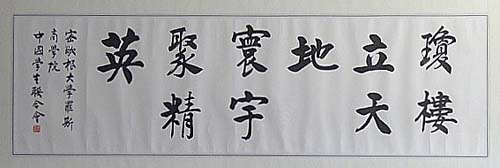 瓊樓
立天
地
寰宇
聚精
英
密歇根大學羅斯
商學院
中國學生聯合會